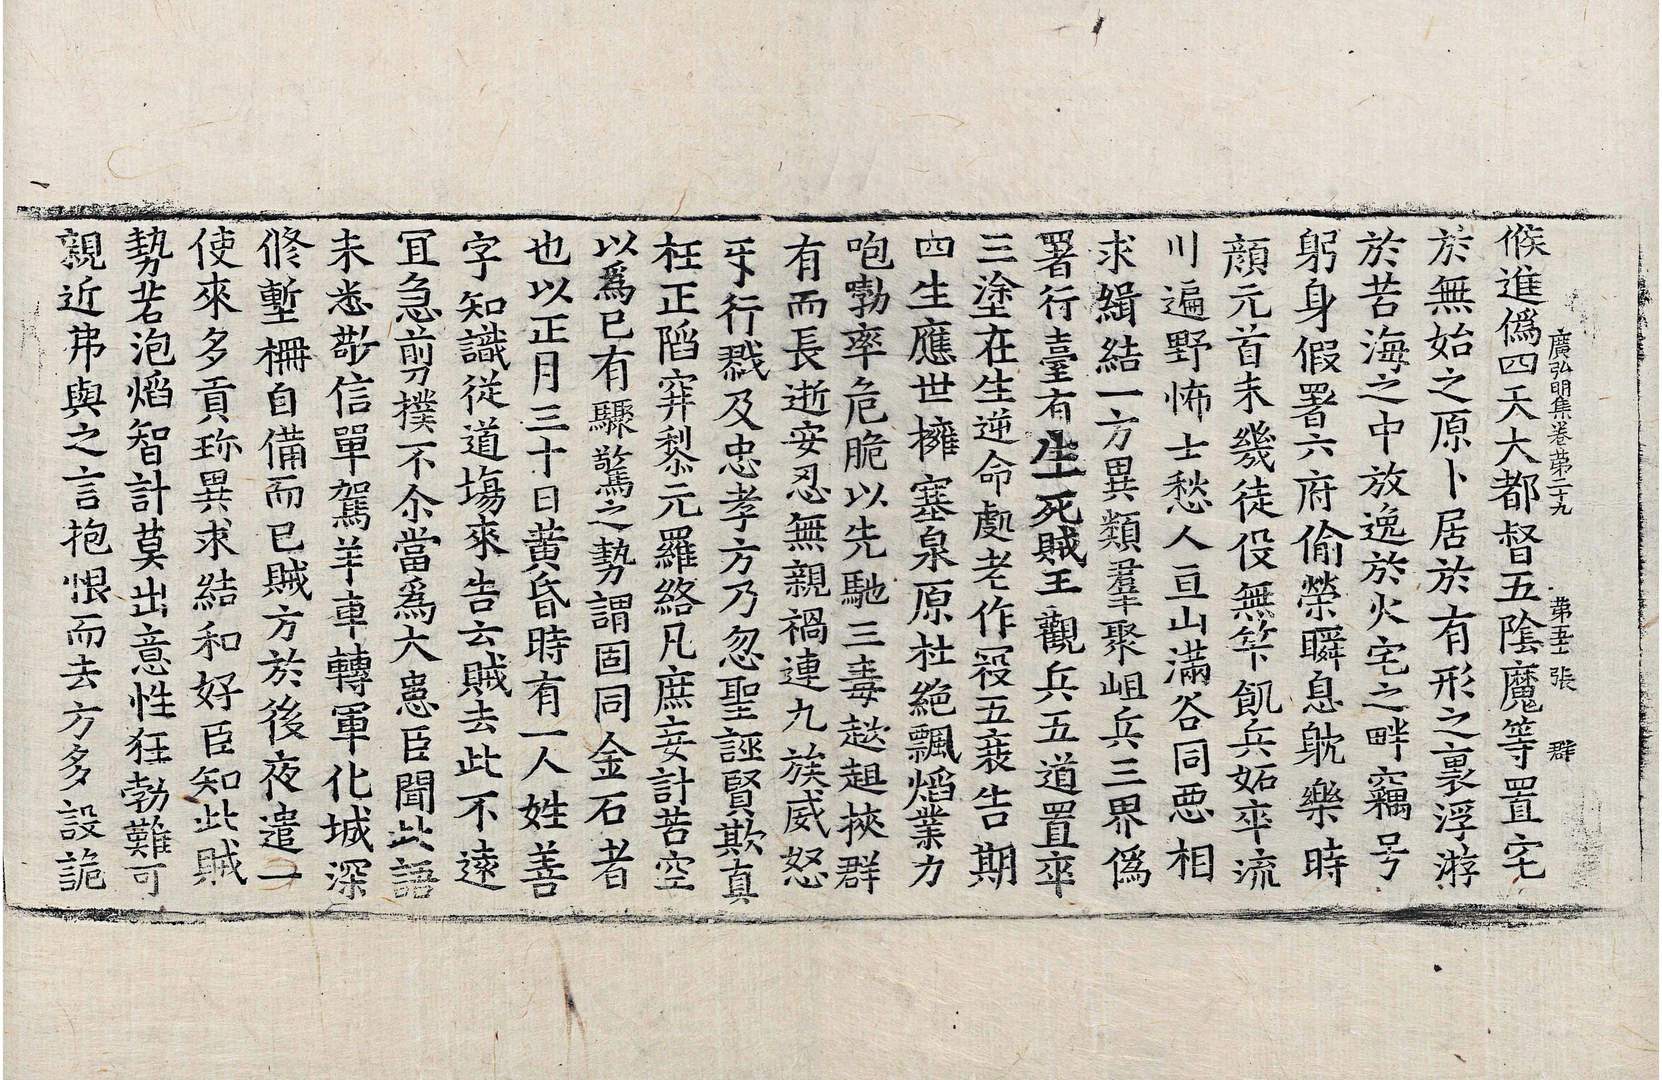 廣弘明集卷苐二十九　苐五十張　群
候進僞四天大都督五陰魔等置宅
於無始之原卜居於有形之裏浮游
於苦海之中放逸於火宅之畔竊号
躬身假署六府偷榮瞬息躭樂時
顏元首未幾徒役無筭飢兵妬卒流
川遍野怖士愁人亘山滿谷同惡相
求緝結一方異類羣聚岨兵三界僞
署行臺有生死賊王觀兵五道置卒
三塗在生逆命處老作寇五衰告期
四生應世擁塞泉原杜絶飄焰業力
咆勃率危脆以先馳三毒趑趄挾群
有而長逝安忍無親禍連九族威怒
㸦行戮及忠孝方乃忽聖誣賢欺真
枉正陷穽黎元羅絡凡庶妄計苦空
以爲己有驟驚之勢謂固同金石者
也以正月三十日黄昏時有一人姓善
字知識従道塲來告云賊去此不遠
冝急剪撲不尒當爲大患臣聞此語
未悉敬信單駕羊車轉軍化城深
脩塹柵自備而已賊方於後夜遣一
使來多貢珎異求結和好臣知此賊
勢若泡焰智計莫出意性狂勃難可
親近弗與之言抱恨而去方多設詭